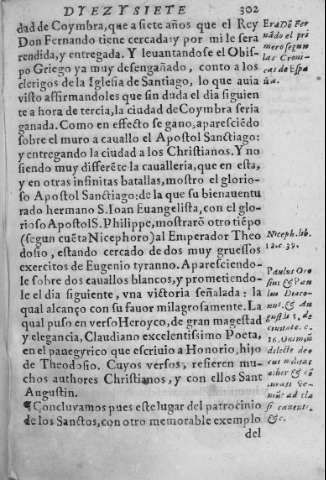 DYEZYSIETE 302
dad de Coymbra, que a siete años que el Rey
Don Fernando tiene cercada: y por mi le sera
rendida, y entregada. Y leuantandose el Obis-
po Griego ya muy desengañado, conto a los
clerigos de la Iglesia de Santiago, lo que auia
visto affirmandoles que sin duda el dia siguien
te a hora de tercia, la ciudad de Coymbra seria
ganada. Como en effecto se gano, aparesciẽdo
sobre el muro a cauallo el Apostol Sanctiago:
y entregando la ciudad a los Christianos. Y no
siendo muy differẽte la caualleria, que en esta,
y en otras infinitas batallas, mostro el glorio-
so Apostol Sanctiago: de la que su bienauentu
rado hermano S. Ioan Euangelista, con el glo-
rioso Apostol S. Philippe, mostrarõ otro tiẽpo
(segun cuẽta Nicephoro) al Emperador Theo
dosio, estando cercado de dos muy gruessos
exercitos de Eugenio tyranno. Apareciendo-
le sobre dos cauallos blancos, y prometiendo-
le el dia siguiente, vna victoria señalada: la
qual alcanço con su fauor milagrosamente. La
qual puso en verso Heroyco, de gran magestad
y elegancia, Claudiano excelentissimo Poeta,
en el panegyrico que escriuio a Honorio, hijo
de Theodosio. Cuyos versos, refieren mu-
chos authores Christianos, y con ellos Sant
Augustin.
¶Concluyamos pues este lugar del patrocinio
de los Sanctos, con otro memorable exemplo
del
Era Dõ Fer
nãdo el pri
mero segun
las Croni-
cas de Espa
ña.
Niceph. lib.
12. c. 39.
Paulus Oro
sius & Pau
lus Diaco-
nus, & Au
gust. 5. de
ciuitate. c.
26.